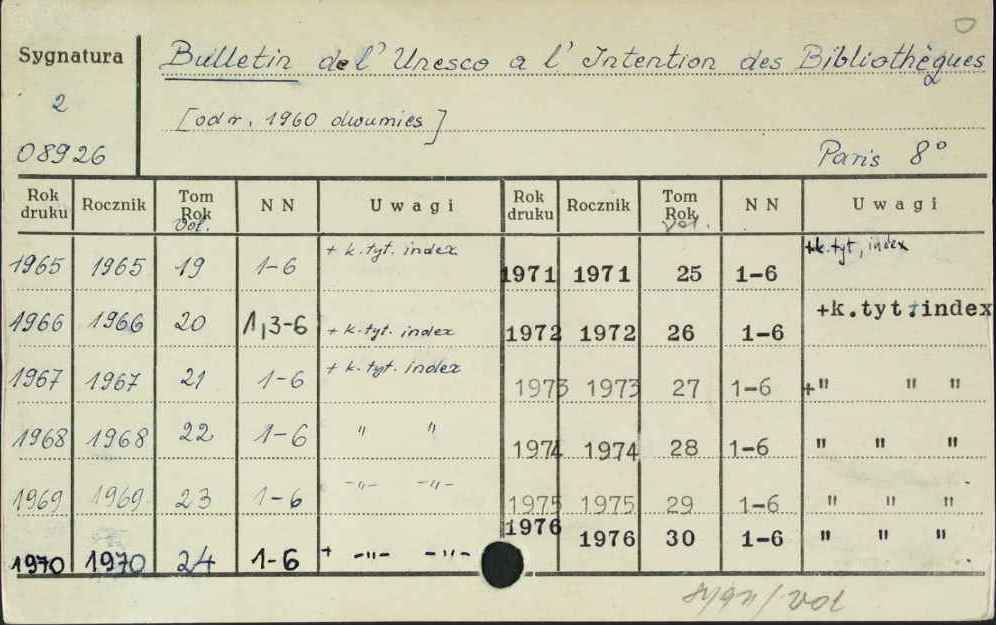 Sygnatura
Bulletin de l'Unesco a l'Intention des Bibliothèques
2
[od r. 1960 dwumies]
08926
Paris 8°
Rok druku Rocznik Tom Rok Vol. N N Uwagi Rok druku Rocznik Tom Rok Vol. N N Uwagi
1965 1965 19 1-6 + k. tyt. index 1971 1971 25 1-6 +k. tyt, index
1966 1966 20 1,3-6 + k. tyt. index 1972 1972 26 1-6 +k.tyt.index
1967 1967 21 1-6 + k. tyt. index 1973 1973 27 1-6 +" " "
1968 1968 22 1-6 " " 1974 1974 28 1-6 " " "
1969 1969 23 1-6 -"- -"- 1975 1975 29 1-6 " " "
1970 1970 24 1-6 + -"- -"- 1976 1976 30 1-6 " " "
/vol